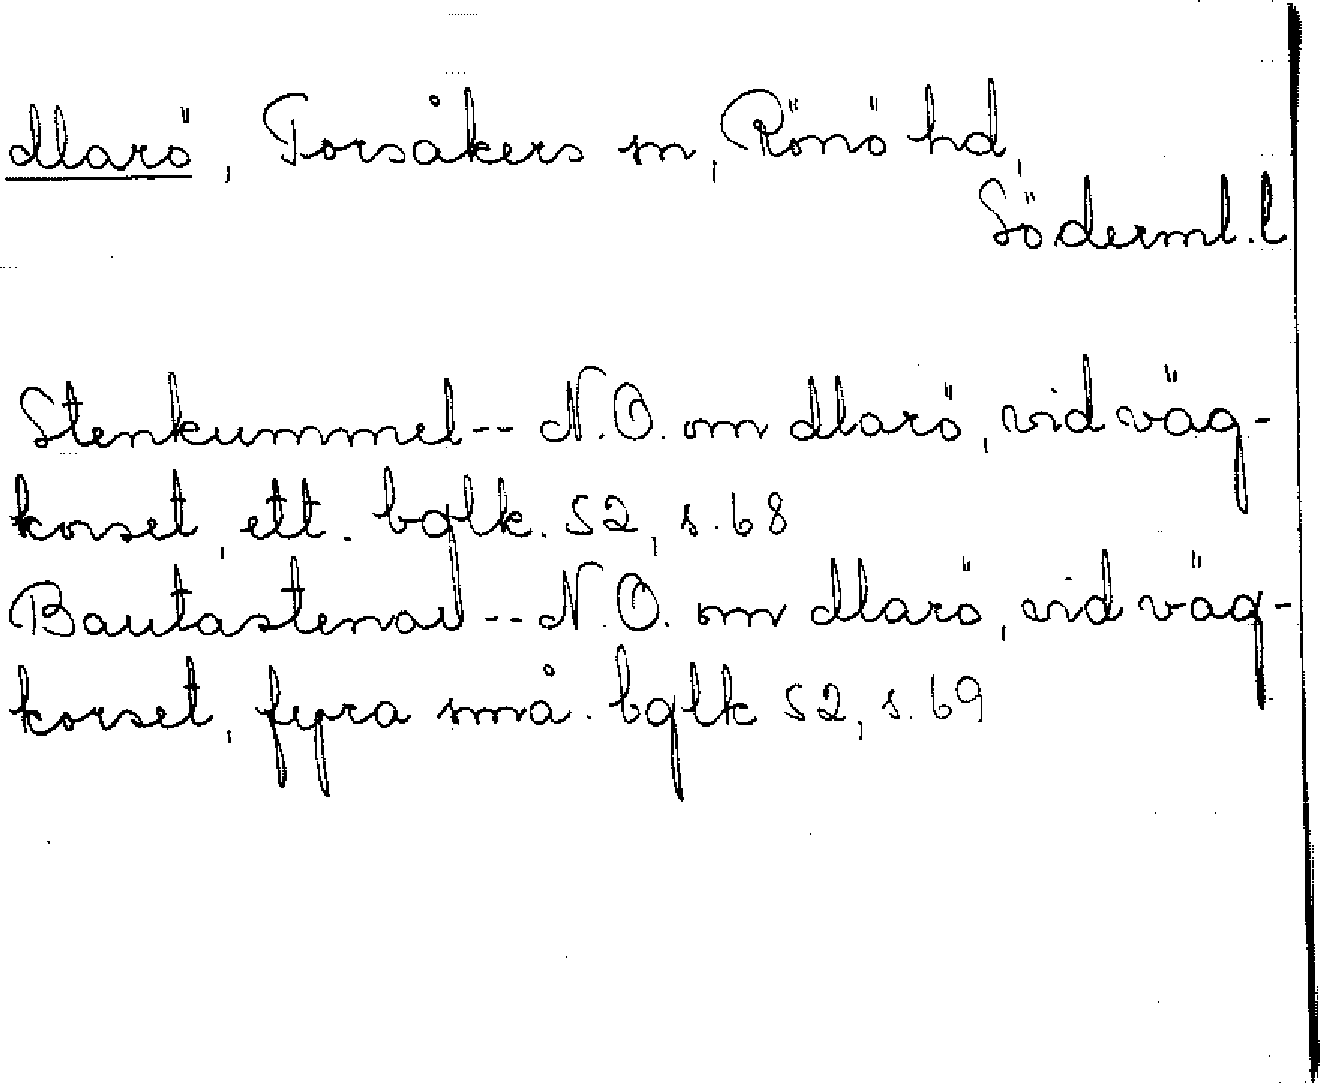 Marö, Torsåkers sn, Rönö hd,
Söderml. l
Stenkummel -- N.O. om Marö, vid väg-
korset, ett. bglk. 52, s. 68
Bautastenar -- N.O. om Marö, vid väg-
korset, fyra små. bglk 52, s. 69